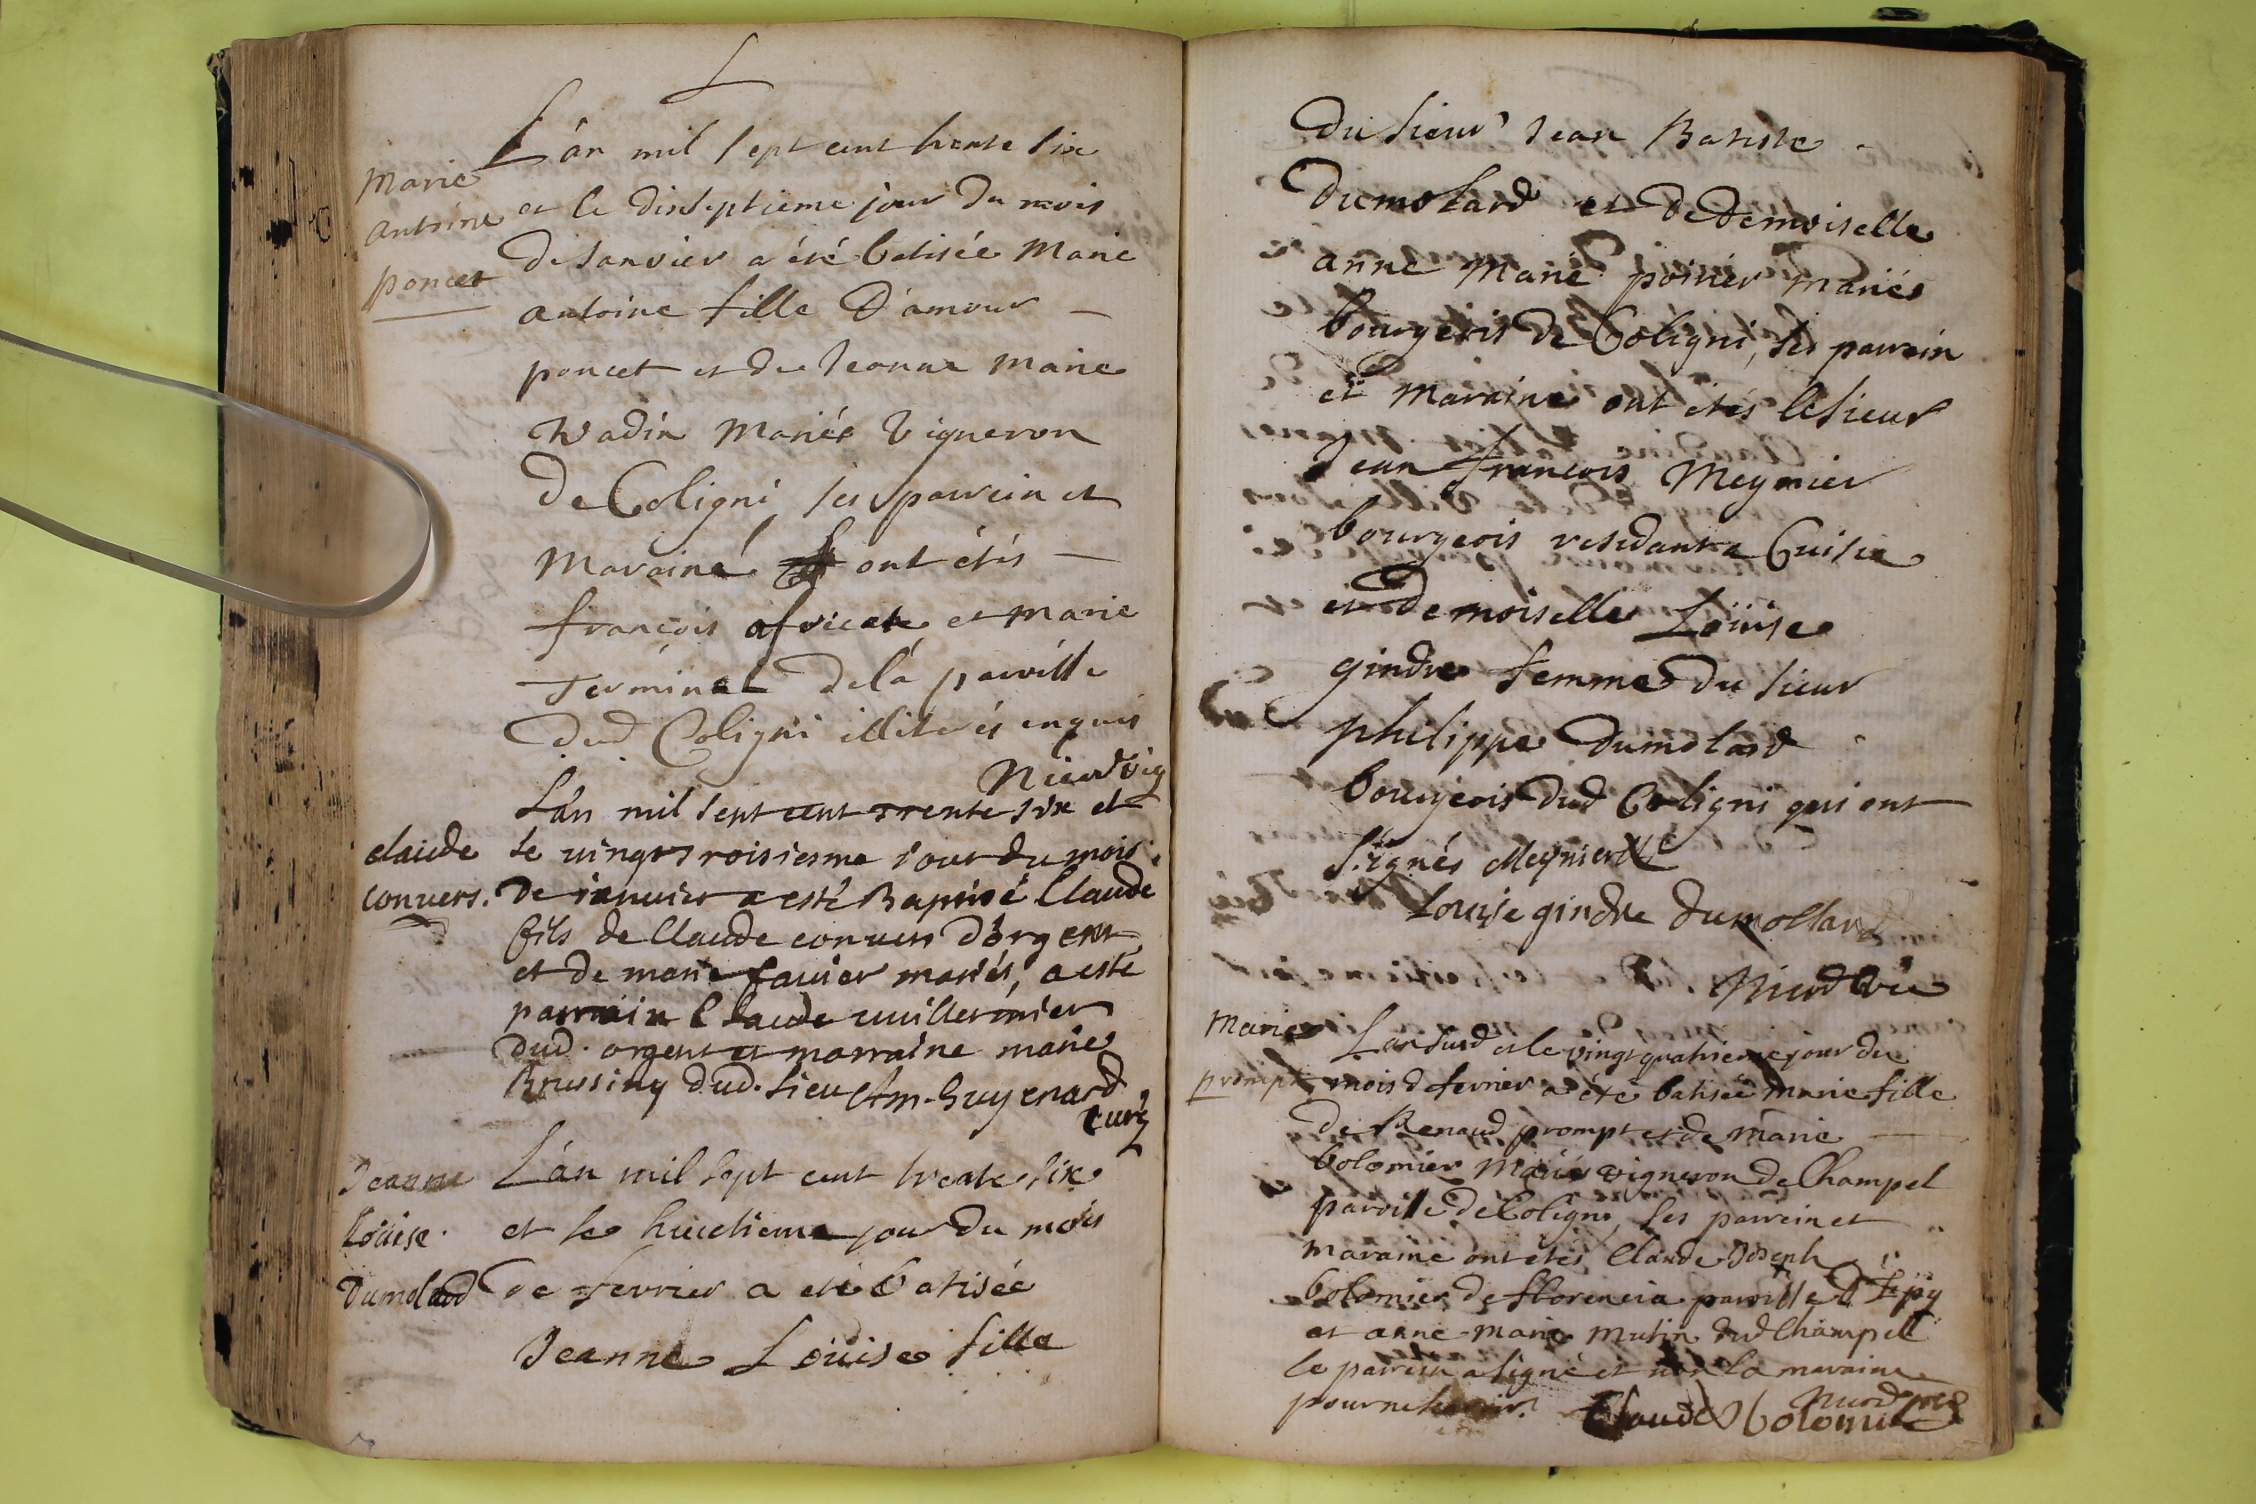 L'an mil sept cent trente six
Marie
Antoine
poncet
et le dixseptieme jour du mois
de Janvier a été batisée Marie
antoine fille D'amour
poncet et de Jeanne Marie
Wadin Mariés Vigneron
De Coligni, ses parrein et
Maraine ont étés
françois africate et Marie
Terminat de la paroisse
dud Coligni illiterés enquis
Nicod vic
L'an mil sept cent trente six et
claude
convers.
le vingtroisiesme jour du mois
De januier a esté Baptisé Claude
fils de Claude convers D'orgent
et de marie favier mariés, a esté
parrain Claude vuillermier
dud. orgent et marraine marie
Brussiny dud. lieu Guyenard
curé
Jeanne
Loüise.
Dumolard
L'an mil sept cent trente six
et le huictieme jour du mois
De fevrier a eté batisée
Jeanne Loüise fille
Du sieur Jean Batiste
Dumolard et de Demoiselle
anne Marie poirier mariés
bourgeois de Coligni, ses parrein
et Maraine ont etés le sieur
Jean françois Meynier
bourgeois residant a Cuisia
et Demoiselle Loüise
gindre femme du sieur
philippe Dumolard
bourgeois dud Coligni qui ont
signés Meynier
Louise gindre dumollard
Nicod vic
Marie
prompt
L'an susd et le vingt quatrieme jour du
mois de fevrier a été batisée marie fille
de Renaud prompt et de marie
bolomier Mariés vigneron de Champel
paroisse de Coligni, ses parrein et
maraine ont étés Claude Joseph
bolomier de florencia paroisse d'Epy
et anne-marie Mutin dud Champel
le parrein a signé et non la maraine
pour ne
Nicod
Claude bolomier